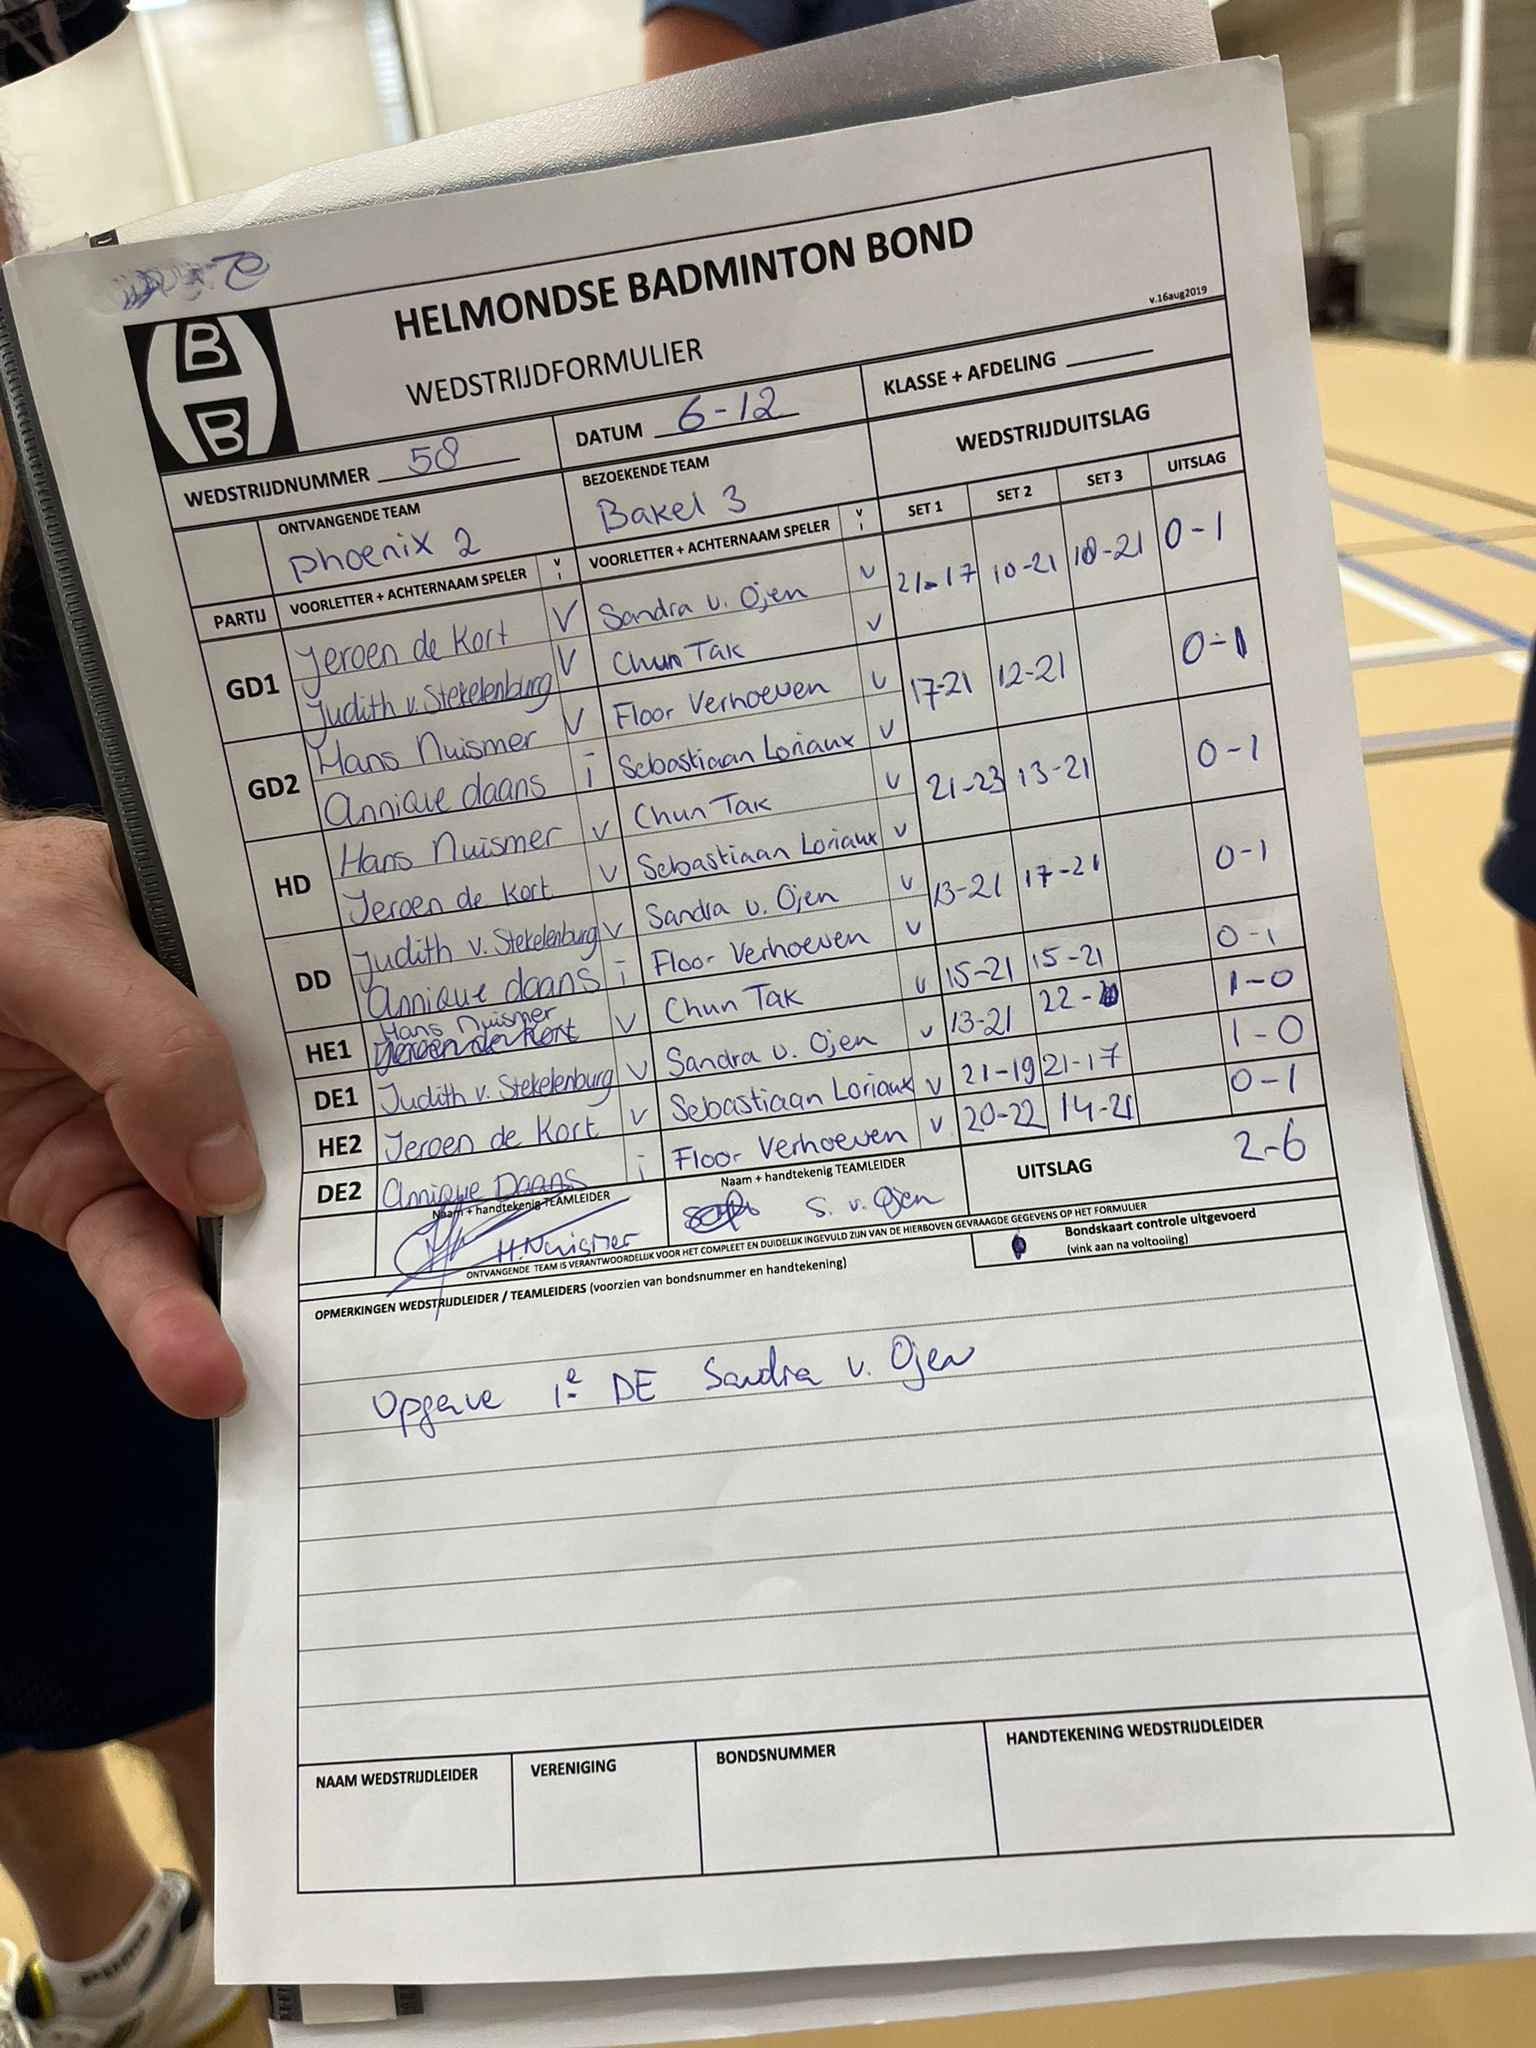 HELMONDSE BADMINTON BOND
v.16aug2019
WEDSTRIJDFORMULIER
B
B
WEDSTRIJDNUMMER 58 DATUM 6-12 KLASSE + AFDELING
ONTVANGENDE TEAM BEZOEKENDE TEAM WEDSTRIJDUITSLAG
Phoenix 2 Bakel 3
PARTIJ VOORLETTER + ACHTERNAAM SPELER V I VOORLETTER + ACHTERNAAM SPELER V I SET 1 SET 2 SET 3 UITSLAG
GD1 Jeroen de Kort V Sandra v. Ojen v 21-17 10-21 18-21 0-1
Judith v. Stekelenburg V Chun Tak v
GD2 Hans Nuismer V Floor Verhoeven v 17-21 12-21 0-1
Annique daans i Sebastiaan Loriaux v
HD Hans Nuismer v Chun Tak v 21-23 13-21 0-1
Jeroen de Kort v Sebastiaan Loriaux v
DD Judith v. Stekelenburg v Sandra v. Ojen v 13-21 17-21 0-1
Annique daans i Floor Verhoeven v
HE1 Hans Nuismer v Chun Tak v 15-21 15-21 0-1
Jeroen de Kort
DE1 Judith v. Stekelenburg v Sandra v. Ojen v 13-21 22- 1-0
HE2 Jeroen de Kort v Sebastiaan Loriaux v 21-19 21-17 1-0
DE2 Annique Daans i Floor Verhoeven v 20-22 14-21 0-1
Naam + handtekenig TEAMLEIDER Naam + handtekenig TEAMLEIDER UITSLAG 2-6
H.Nuismer S. v. Ojen
ONTVANGENDE TEAM IS VERANTWOORDELIJK VOOR HET COMPLEET EN DUIDELIJK INGEVULD ZIJN VAN DE HIERBOVEN GEVRAAGDE GEGEVENS OP HET FORMULIER
Bondskaart controle uitgevoerd
(vink aan na voltooiing)
OPMERKINGEN WEDSTRIJDLEIDER / TEAMLEIDERS (voorzien van bondsnummer en handtekening)
Opgave 1e DE Sandra v. Ojen
NAAM WEDSTRIJDLEIDER VERENIGING BONDSNUMMER HANDTEKENING WEDSTRIJDLEIDER